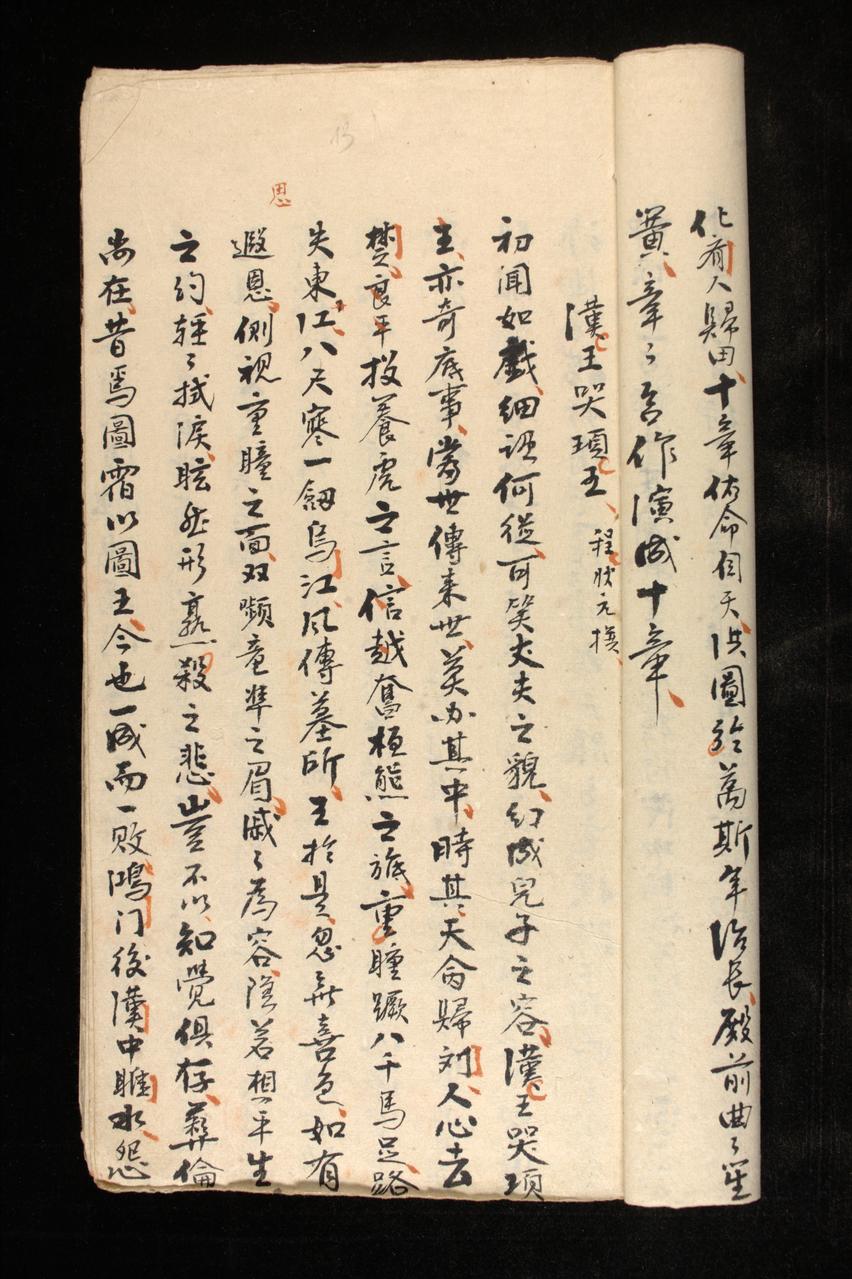 化有人歸田十章佑命自天洪圖於萬斯年治長殿前曲〻笙
簧章〻言作演成十章
漢王哭項王 程狀元撰
初聞如戲細認何從可笑丈夫之貌幻成兒子之容漢王哭項
王亦奇底事當世傳来世英Note其中時其天命歸刘人心去
楚良平投養虎之言信越奮桓熊之旅重瞳蹶八千馬足路
失東江八尺寒一劔烏江風傳墓所王於是忽無喜色如有
恩
遐恩側視重瞳之面双嚬竜準之眉戚〻為容隱若想平生
之約輕〻拭淚眩然形熟殺之悲豈不以知覺俱存彝倫
尚在昔焉圖霸以圖王今也一成而一敗鴻门後漢中睢水怨